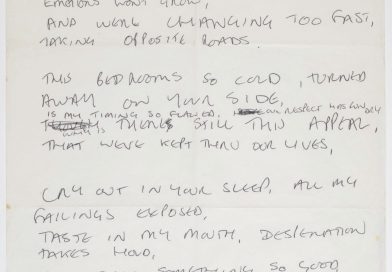 EMOTIONS WON'T GROW,
AND WERE CHANGING TOO FAST,
TAKING OPPOSITE ROADS.
THIS BEDROOMS SO COLD, TURNED
AWAY ON YOUR SIDE,
IS MY TIMING SO FLAWED, OUR RESPECT RUN DRY
WHY IS THERE STILL THIS APPEAL,
THAT WE'VE KEPT THRU OUR LIVES,
CRY OUT IN YOUR SLEEP, ALL MY
FAILINGS EXPOSED,
TASTE IN MY MOUTH, DESPERATION
TAKES HOLD,
SOMETHING SO GOOD